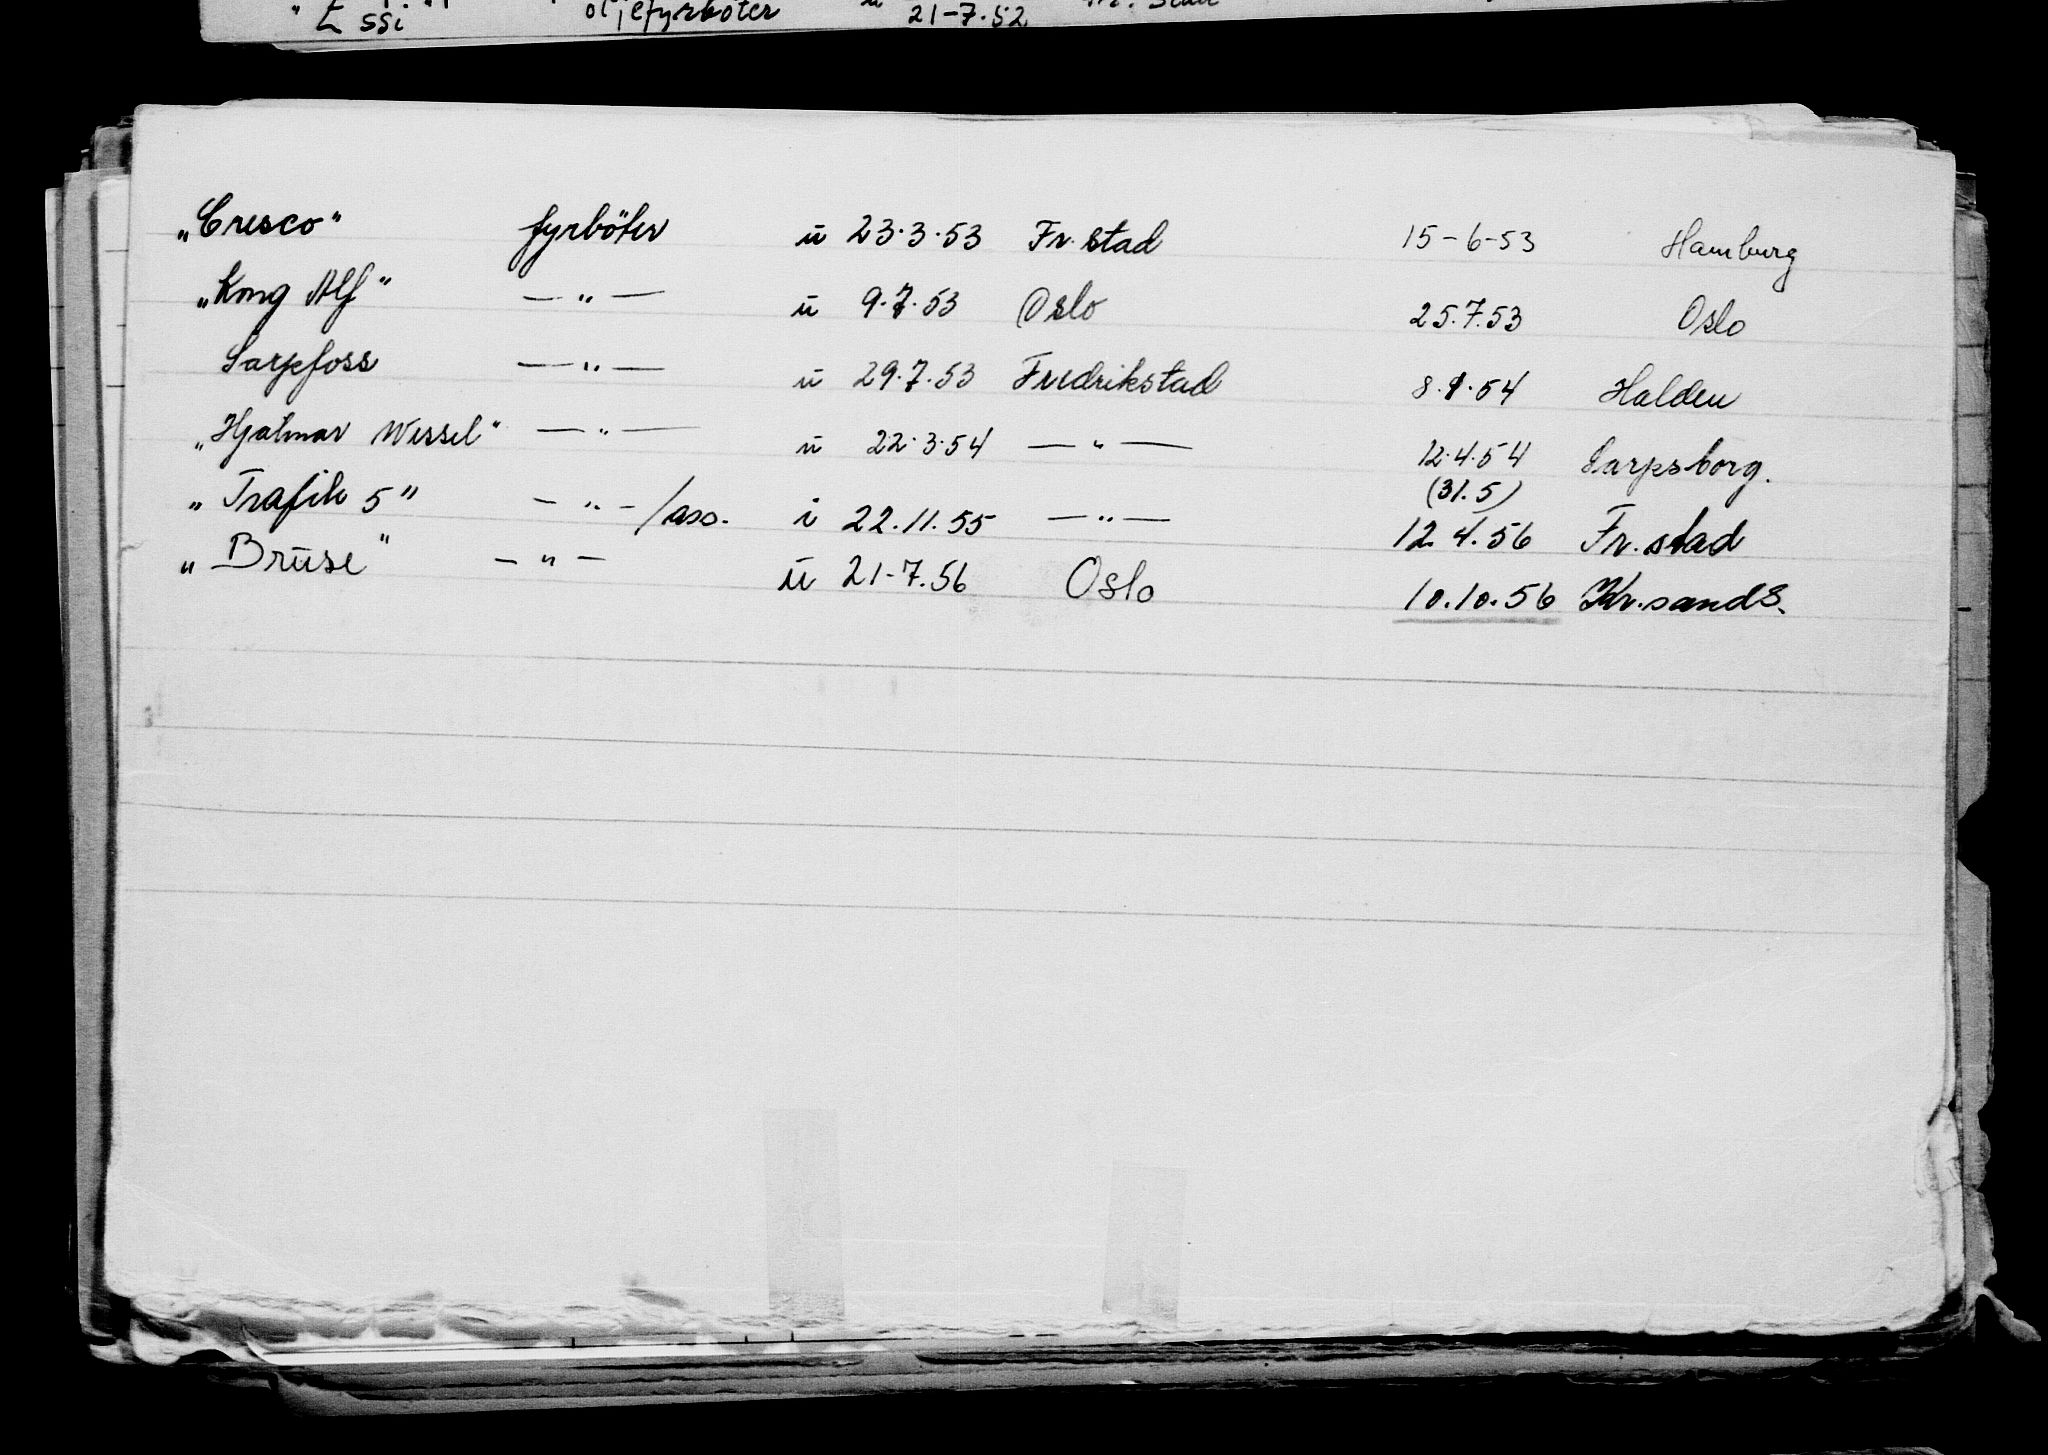 "Essi" oljefyrböter u 21-7.52
„Cresco" fyrböter u 23.3.53 Fr.stad 15-6-53 Hamburg
„Kong Alf" — " — u 9.7.53 Oslo 25.7.53 Oslo
Sarpefoss — " — u 29.7.53 Fredrikstad 8.1.54 Halden
„Hjalmar Wessel" — " — u 22.3.54 — " — 12.4.54 Sarpsborg.
(31.5)
„Trafik 5" — " — /ass. i 22.11.55 — " — 12.4.56 Fr.stad
„Brüse" — " — u 21-7.56 Oslo 10.10.56 Kr.sands.